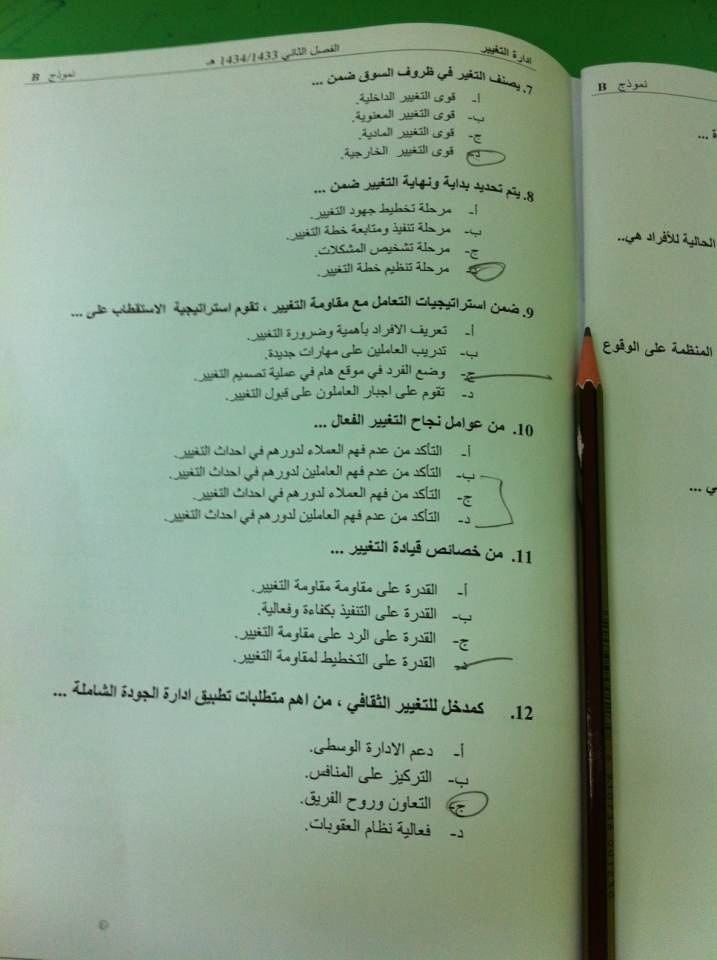 ادارة التغيير
الفصل الثاني 1434/1433 هـ
نموذج B
7. يصنف التغير في ظروف السوق ضمن ...
أ- قوى التغيير الداخلية.
ب- قوى التغيير المعنوية.
ج- قوى التغيير المادية.
د- قوى التغيير الخارجية.
8. يتم تحديد بداية ونهاية التغيير ضمن ...
أ- مرحلة تخطيط جهود التغيير.
ب- مرحلة تنفيذ ومتابعة خطة التغيير.
ج- مرحلة تشخيص المشكلات.
د- مرحلة تنظيم خطة التغيير.
9. ضمن استراتيجيات التعامل مع مقاومة التغيير ، تقوم استراتيجية الاستقطاب على ...
أ- تعريف الافراد بأهمية وضرورة التغيير.
ب- تدريب العاملين على مهارات جديدة.
ج- وضع الفرد في موقع هام في عملية تصميم التغيير.
د- تقوم على اجبار العاملون على قبول التغيير.
10. من عوامل نجاح التغيير الفعال ...
أ- التأكد من عدم فهم العملاء لدورهم في احداث التغيير.
ب- التأكد من عدم فهم العاملين لدورهم في احداث التغيير.
ج- التأكد من فهم العملاء لدورهم في احداث التغيير.
د- التأكد من عدم فهم العاملين لدورهم في احداث التغيير.
11. من خصائص قيادة التغيير ...
أ- القدرة على مقاومة مقاومة التغيير.
ب- القدرة على التنفيذ بكفاءة وفعالية.
ج- القدرة على الرد على مقاومة التغيير.
د- القدرة على التخطيط لمقاومة التغيير.
12. كمدخل للتغيير الثقافي ، من اهم متطلبات تطبيق ادارة الجودة الشاملة ...
أ- دعم الادارة الوسطى.
ب- التركيز على المنافس.
ج- التعاون وروح الفريق.
د- فعالية نظام العقوبات.
©
نموذج B
ة ...
الحالية للأفراد هي..
المنظمة على الوقوع
ي ...